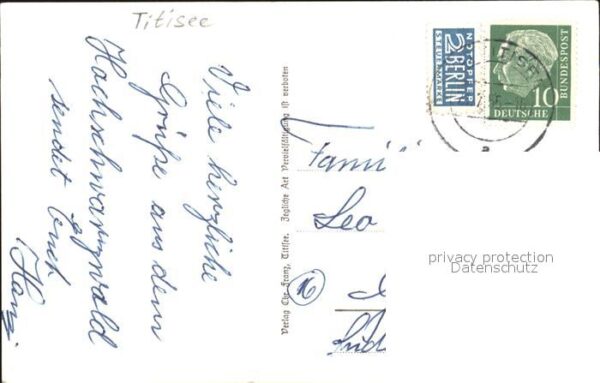 Titisee
Viele herzliche
Grüße aus dem
Hochschwarzwald
sendet Euch
Hans
Verlag Chr. Franz, Titisee. Jegliche Art Vervielfältigung ist verboten
NOTOPFER
2 BERLIN
STEUERMARKE
DEUTSCHE
BUNDESPOST
10
TITISEE
a
Famil
Leo
16
privacy protection
Datenschutz